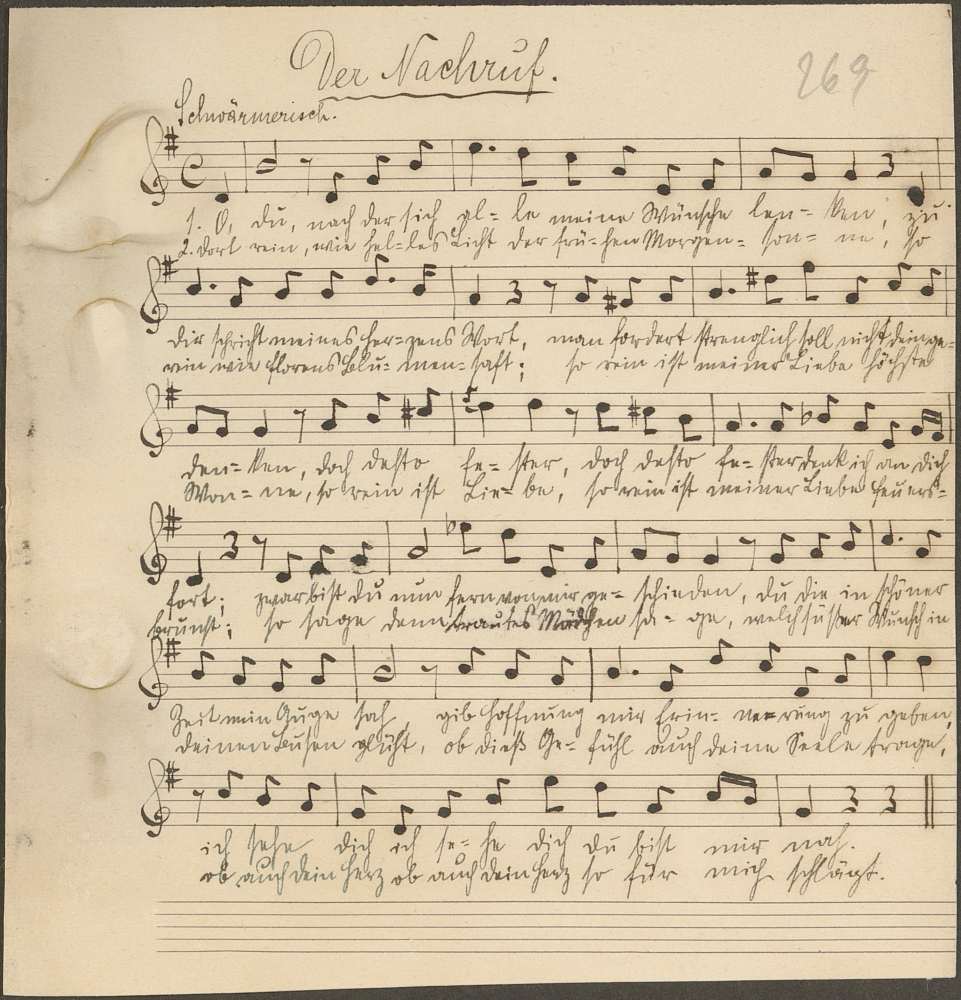 Der Nachruf.
269
Schwärmerisch.
1. O, du, nach der sich al-le meine Wünsche len-ken, zu
2. dort rein, wie hel-les Licht der frü-hen Morgen-son-ne, so
dir spricht meines Her-zens Wort, man fordert strenglich soll nicht dein ge-
rein wie Florens Blu-men-saft; so rein ist meiner Liebe höchste
den-ken, doch desto fe-ster, doch desto fe-ster denk ich an dich
Won-ne, so rein ist Lie-be, so rein ist meiner Liebe Feuers-
fort; zwar bist du nun fern von mir ge-schieden, du die in schöner
brunst; so sage denn trautes Mädchen sa-ge, welch süßer Wunsch in
Zeit mein Auge sah, gib Hoffnung mir Erin-nerung zu geben,
deinen Busen glüht, ob dieß Ge-fühl auch deine Seele trage,
ich sehe dich ich se-he dich du bist mir nah.
ob auch dein Herz ob auch dein Herz so für mich schlägt.